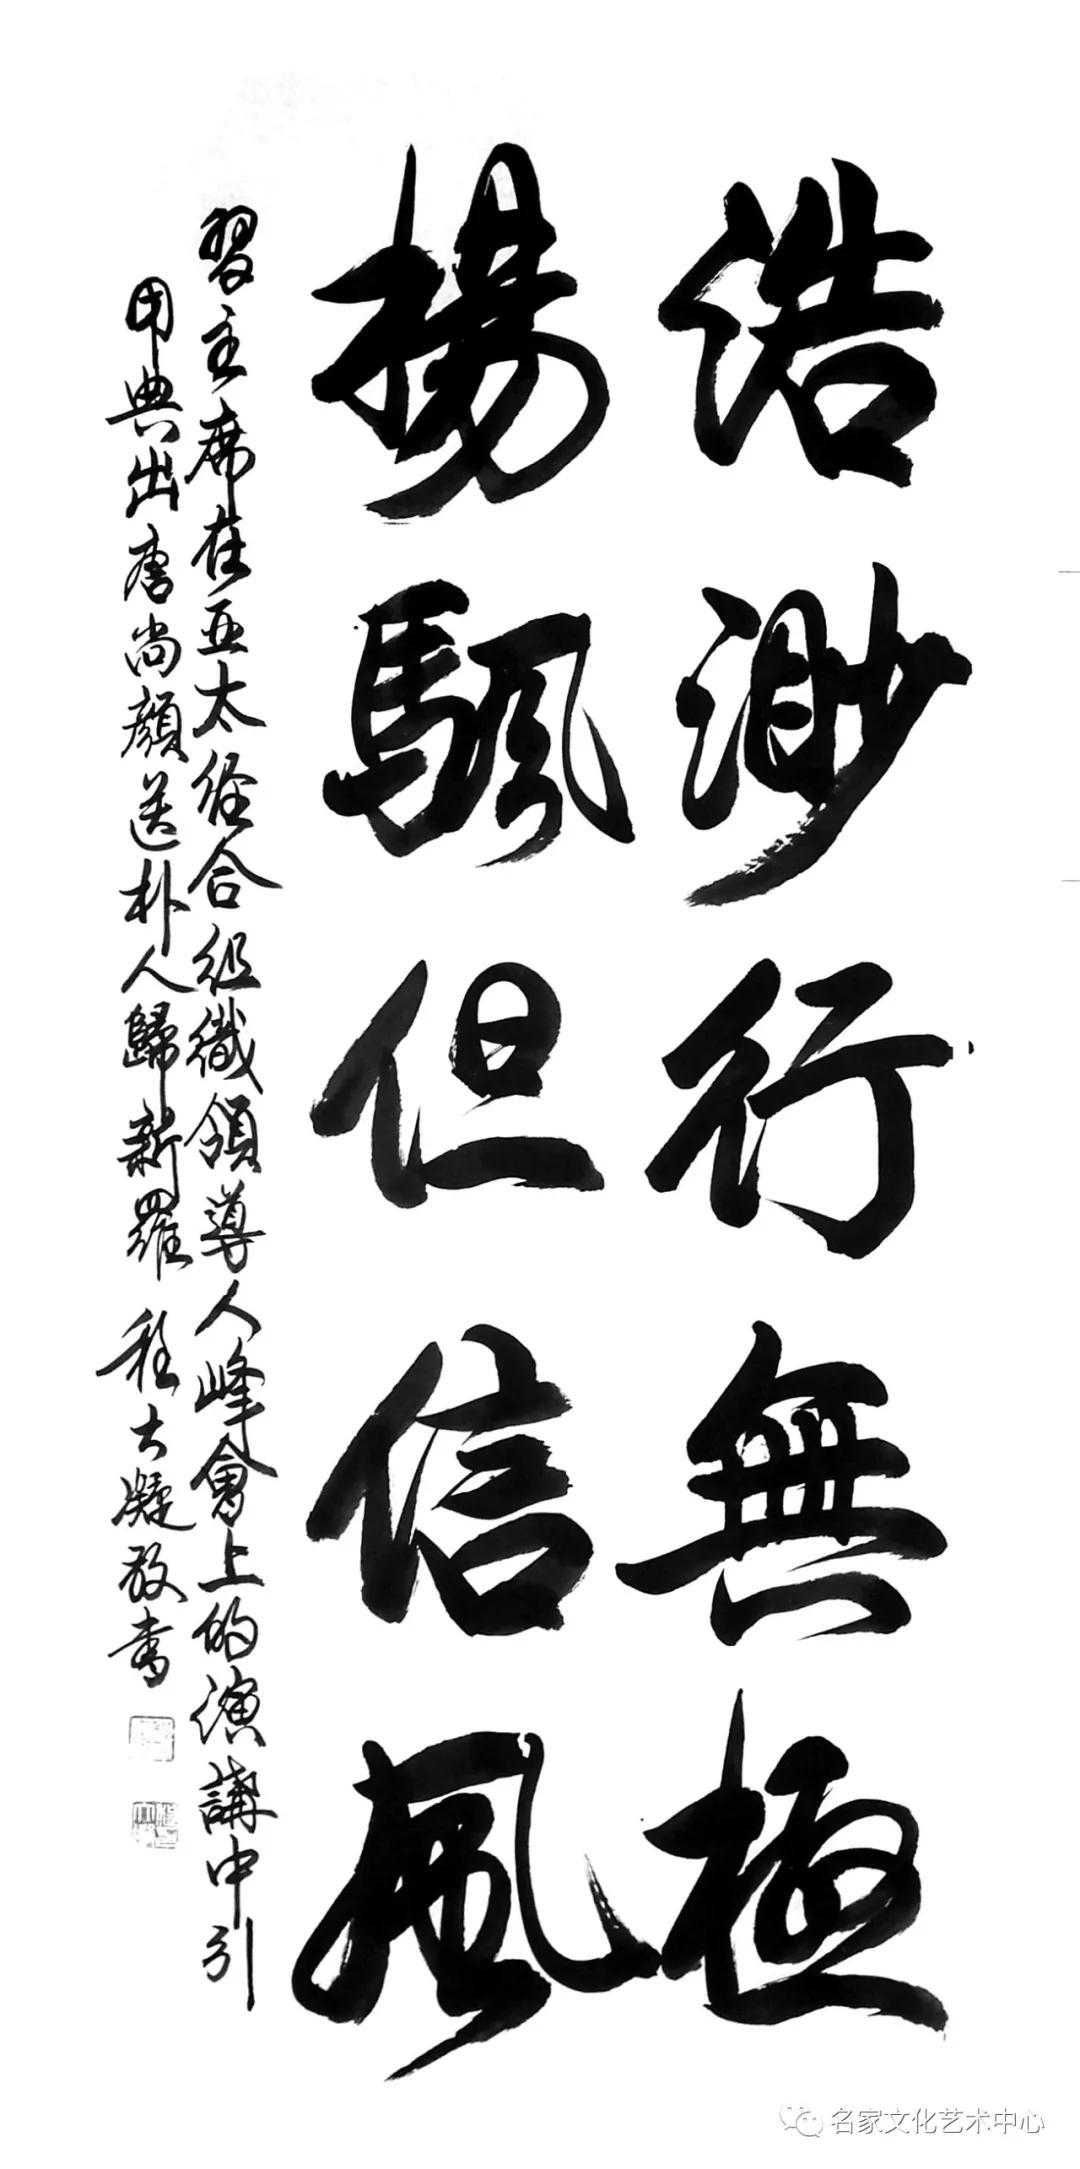 浩渺行無極
揚颿但信風
習主席在亚太经合组織領導人峰會上的演講中引
用典出唐尚顏送朴人歸新羅 程大凝敬書
名家文化艺术中心